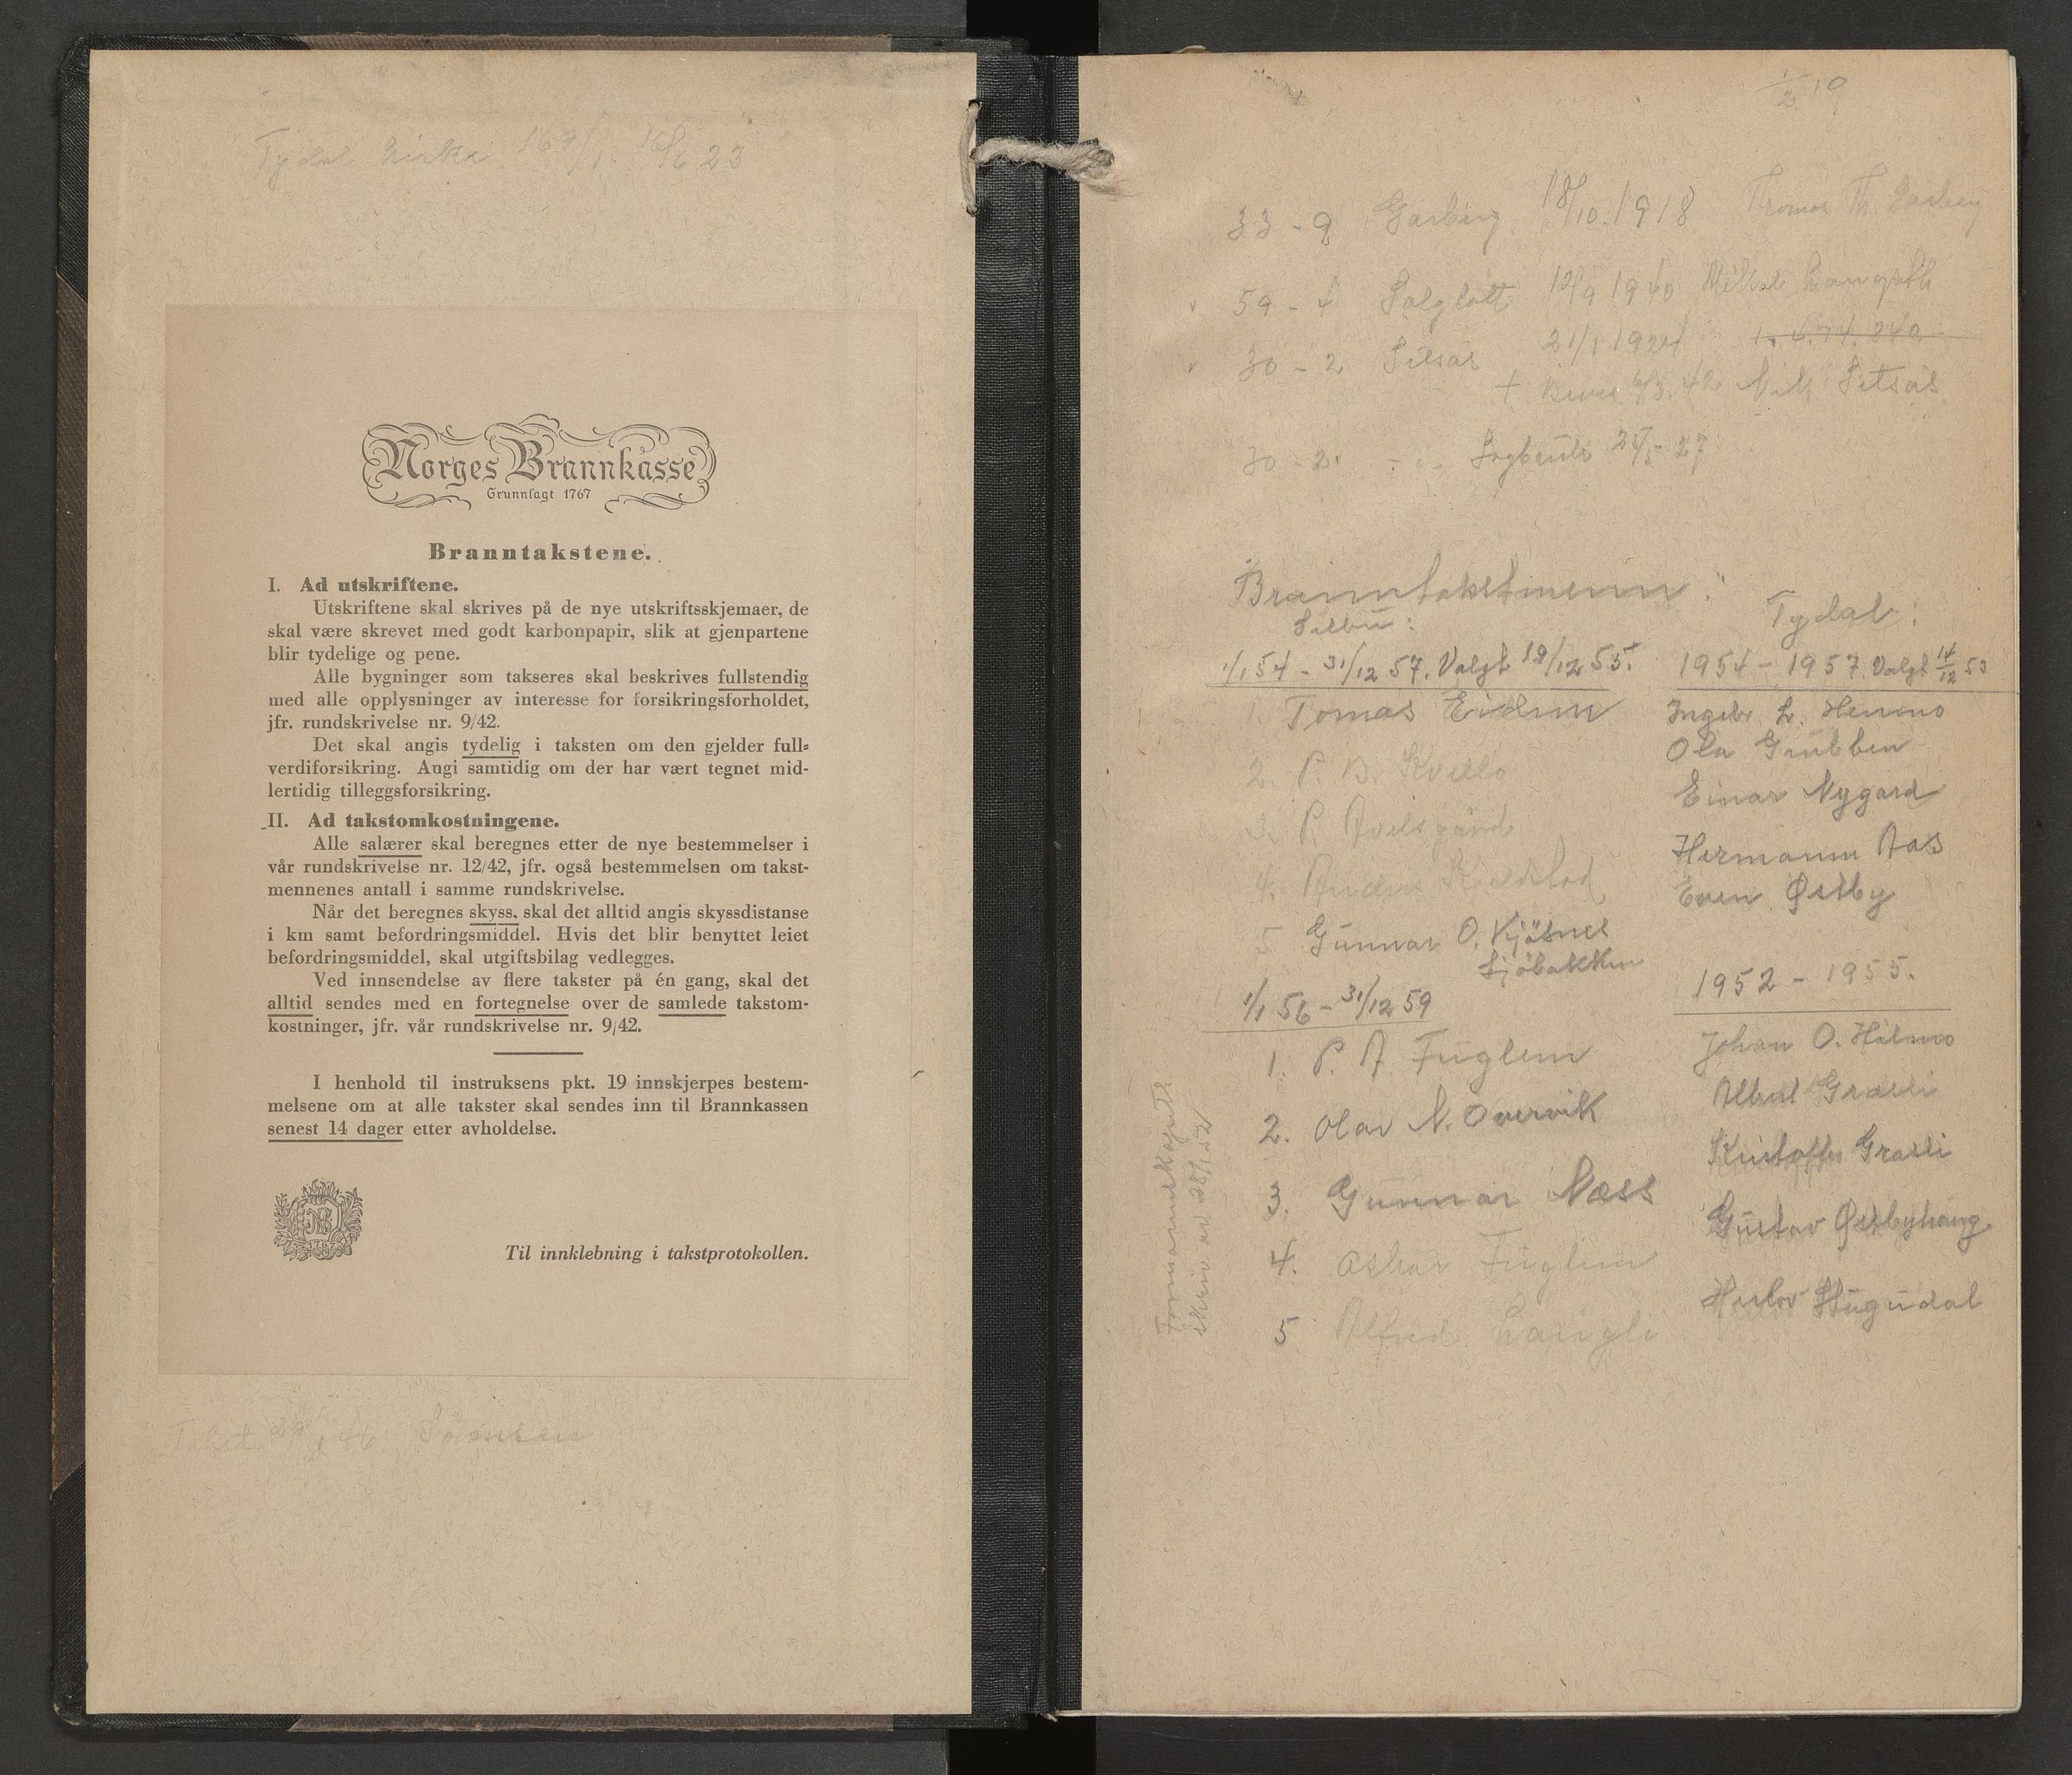 Tydal kirke 167/1 16/6 23
Norges Brannkasse
Grunnlagt 1767
Branntakstene.
I. Ad utskriftene.
Utskriftene skal skrives på de nye utskriftsskjemaer, de
skal være skrevet med godt karbonpapir, slik at gjenpartene
blir tydelige og pene.
Alle bygninger som takseres skal beskrives fullstendig
med alle opplysninger av interesse for forsikringsforholdet,
jfr. rundskrivelse nr. 9/42.
Det skal angis tydelig i taksten om den gjelder full-
verdiforsikring. Angi samtidig om der har vært tegnet mid-
lertidig tilleggsforsikring.
II. Ad takstomkostningene.
Alle salærer skal beregnes etter de nye bestemmelser i
vår rundskrivelse nr. 12/42, jfr. også bestemmelsen om takst-
mennenes antall i samme rundskrivelse.
Når det beregnes skyss, skal det alltid angis skyssdistanse
i km samt befordringsmiddel. Hvis det blir benyttet leiet
befordringsmiddel, skal utgiftsbilag vedlegges.
Ved innsendelse av flere takster på én gang, skal det
alltid sendes med en fortegnelse over de samlede takstom-
kostninger, jfr. vår rundskrivelse nr. 9/42.
I henhold til instruksens pkt. 19 innskjerpes bestem-
melsene om at alle takster skal sendes inn til Brannkassen
senest 14 dager etter avholdelse.
NB
1767
Til innklebning i takstprotokollen.
Takst
1/2 19
33 - 9 Garberg 18/10.1918 Thomas Th. Garberg
59 - 4 Solgløtt 12/9 1940 Mikal Langseth
30 - 2 Selsås 21/1 1924
6/3.42 Nils Selsås
30 - 2. Sagbruk 25/5 27
Branntakstmenn:
Selbu:
1/1 54 - 31/12 57. Valgt 19/12 55.
1. Tomas Eidem
2. P. B. Kvello
3. P. Avelsgård
4. Anders Kjeldstad
5. Gunnar O. Kjøsnes
Sjøbakken
1/1 56 - 31/12 59
1. P. A. Fuglem
2. Olav N. Overvik
3. Gunnar Næss
4. Asbar Fuglem
5 Alfred Langli
Formannskapets
skriv av 28/1-52
Tydal:
1954 - 1957. Valgt 14/12 53
Ingebr. L. Henmo
Ola Grubben
Einar Nygard
Hermann Aas
Even Østby
1952 - 1955.
Johan O. Hilmo
Albert Græsli
Kristoffer Græsli
Gustav Østbyhaug
Stugudal